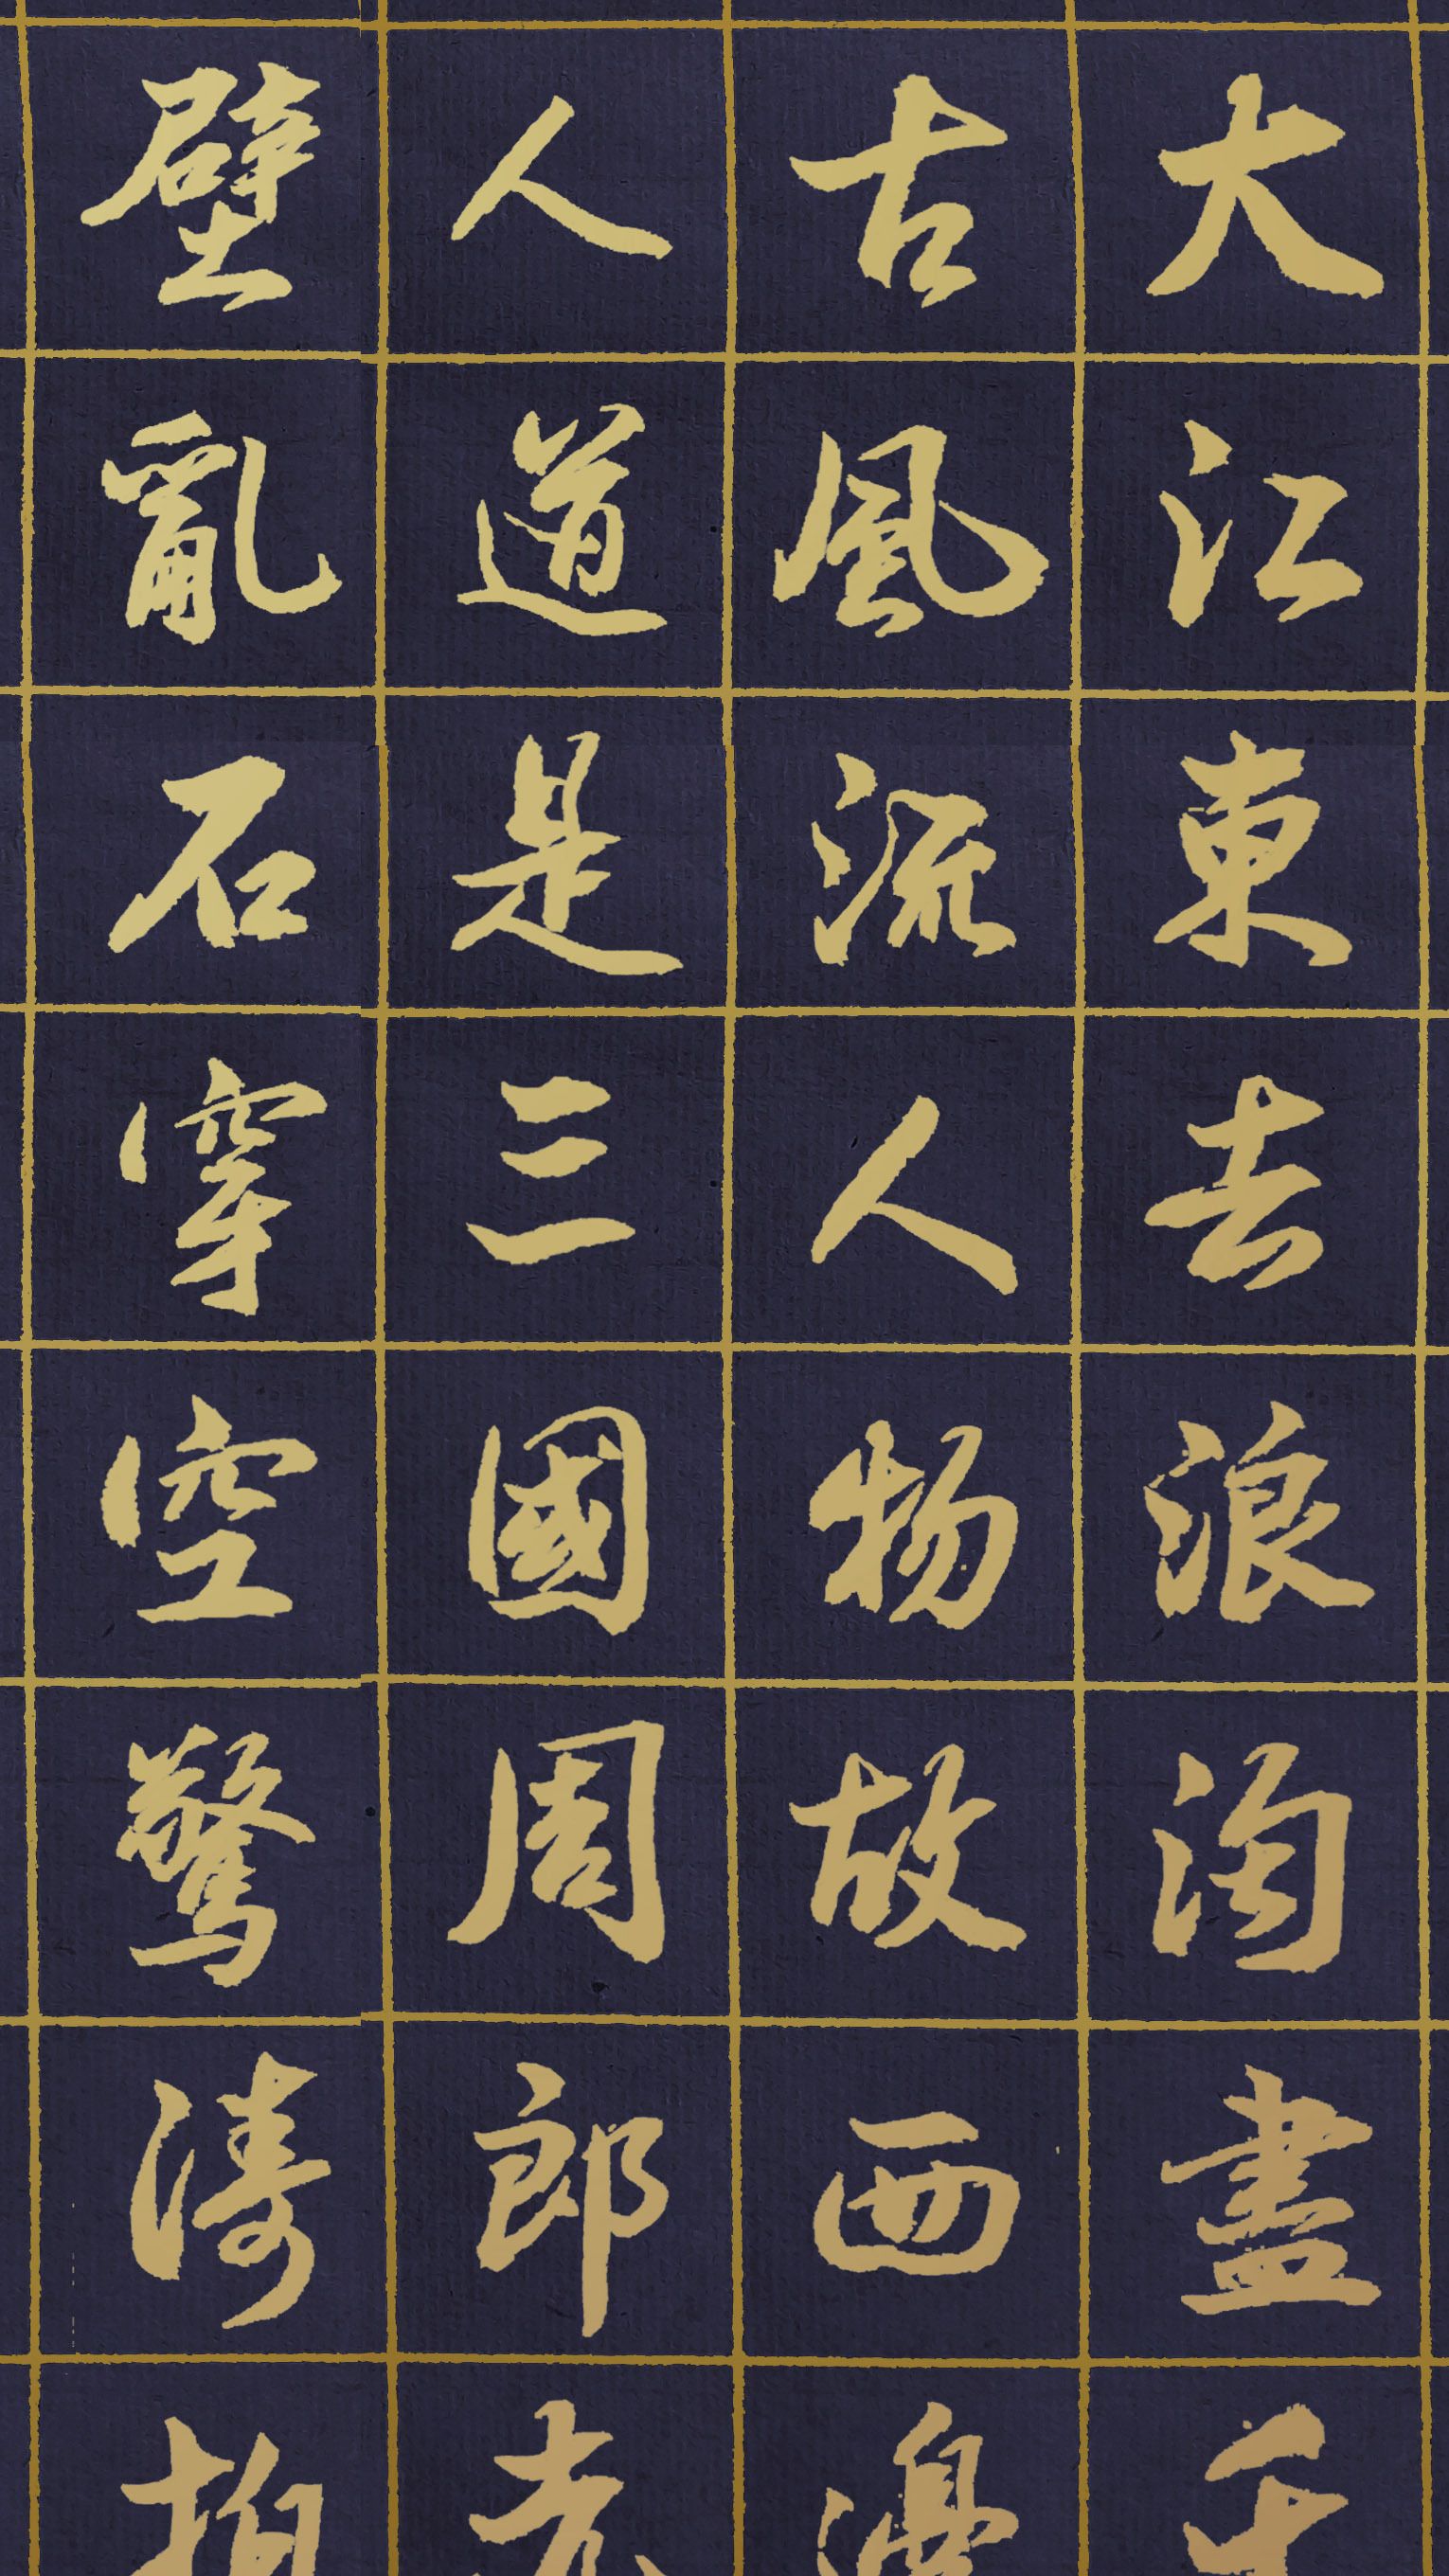 大江東去浪淘盡千
古風流人物故西邊
人道是三國周郎赤
壁亂石穿空驚濤拍